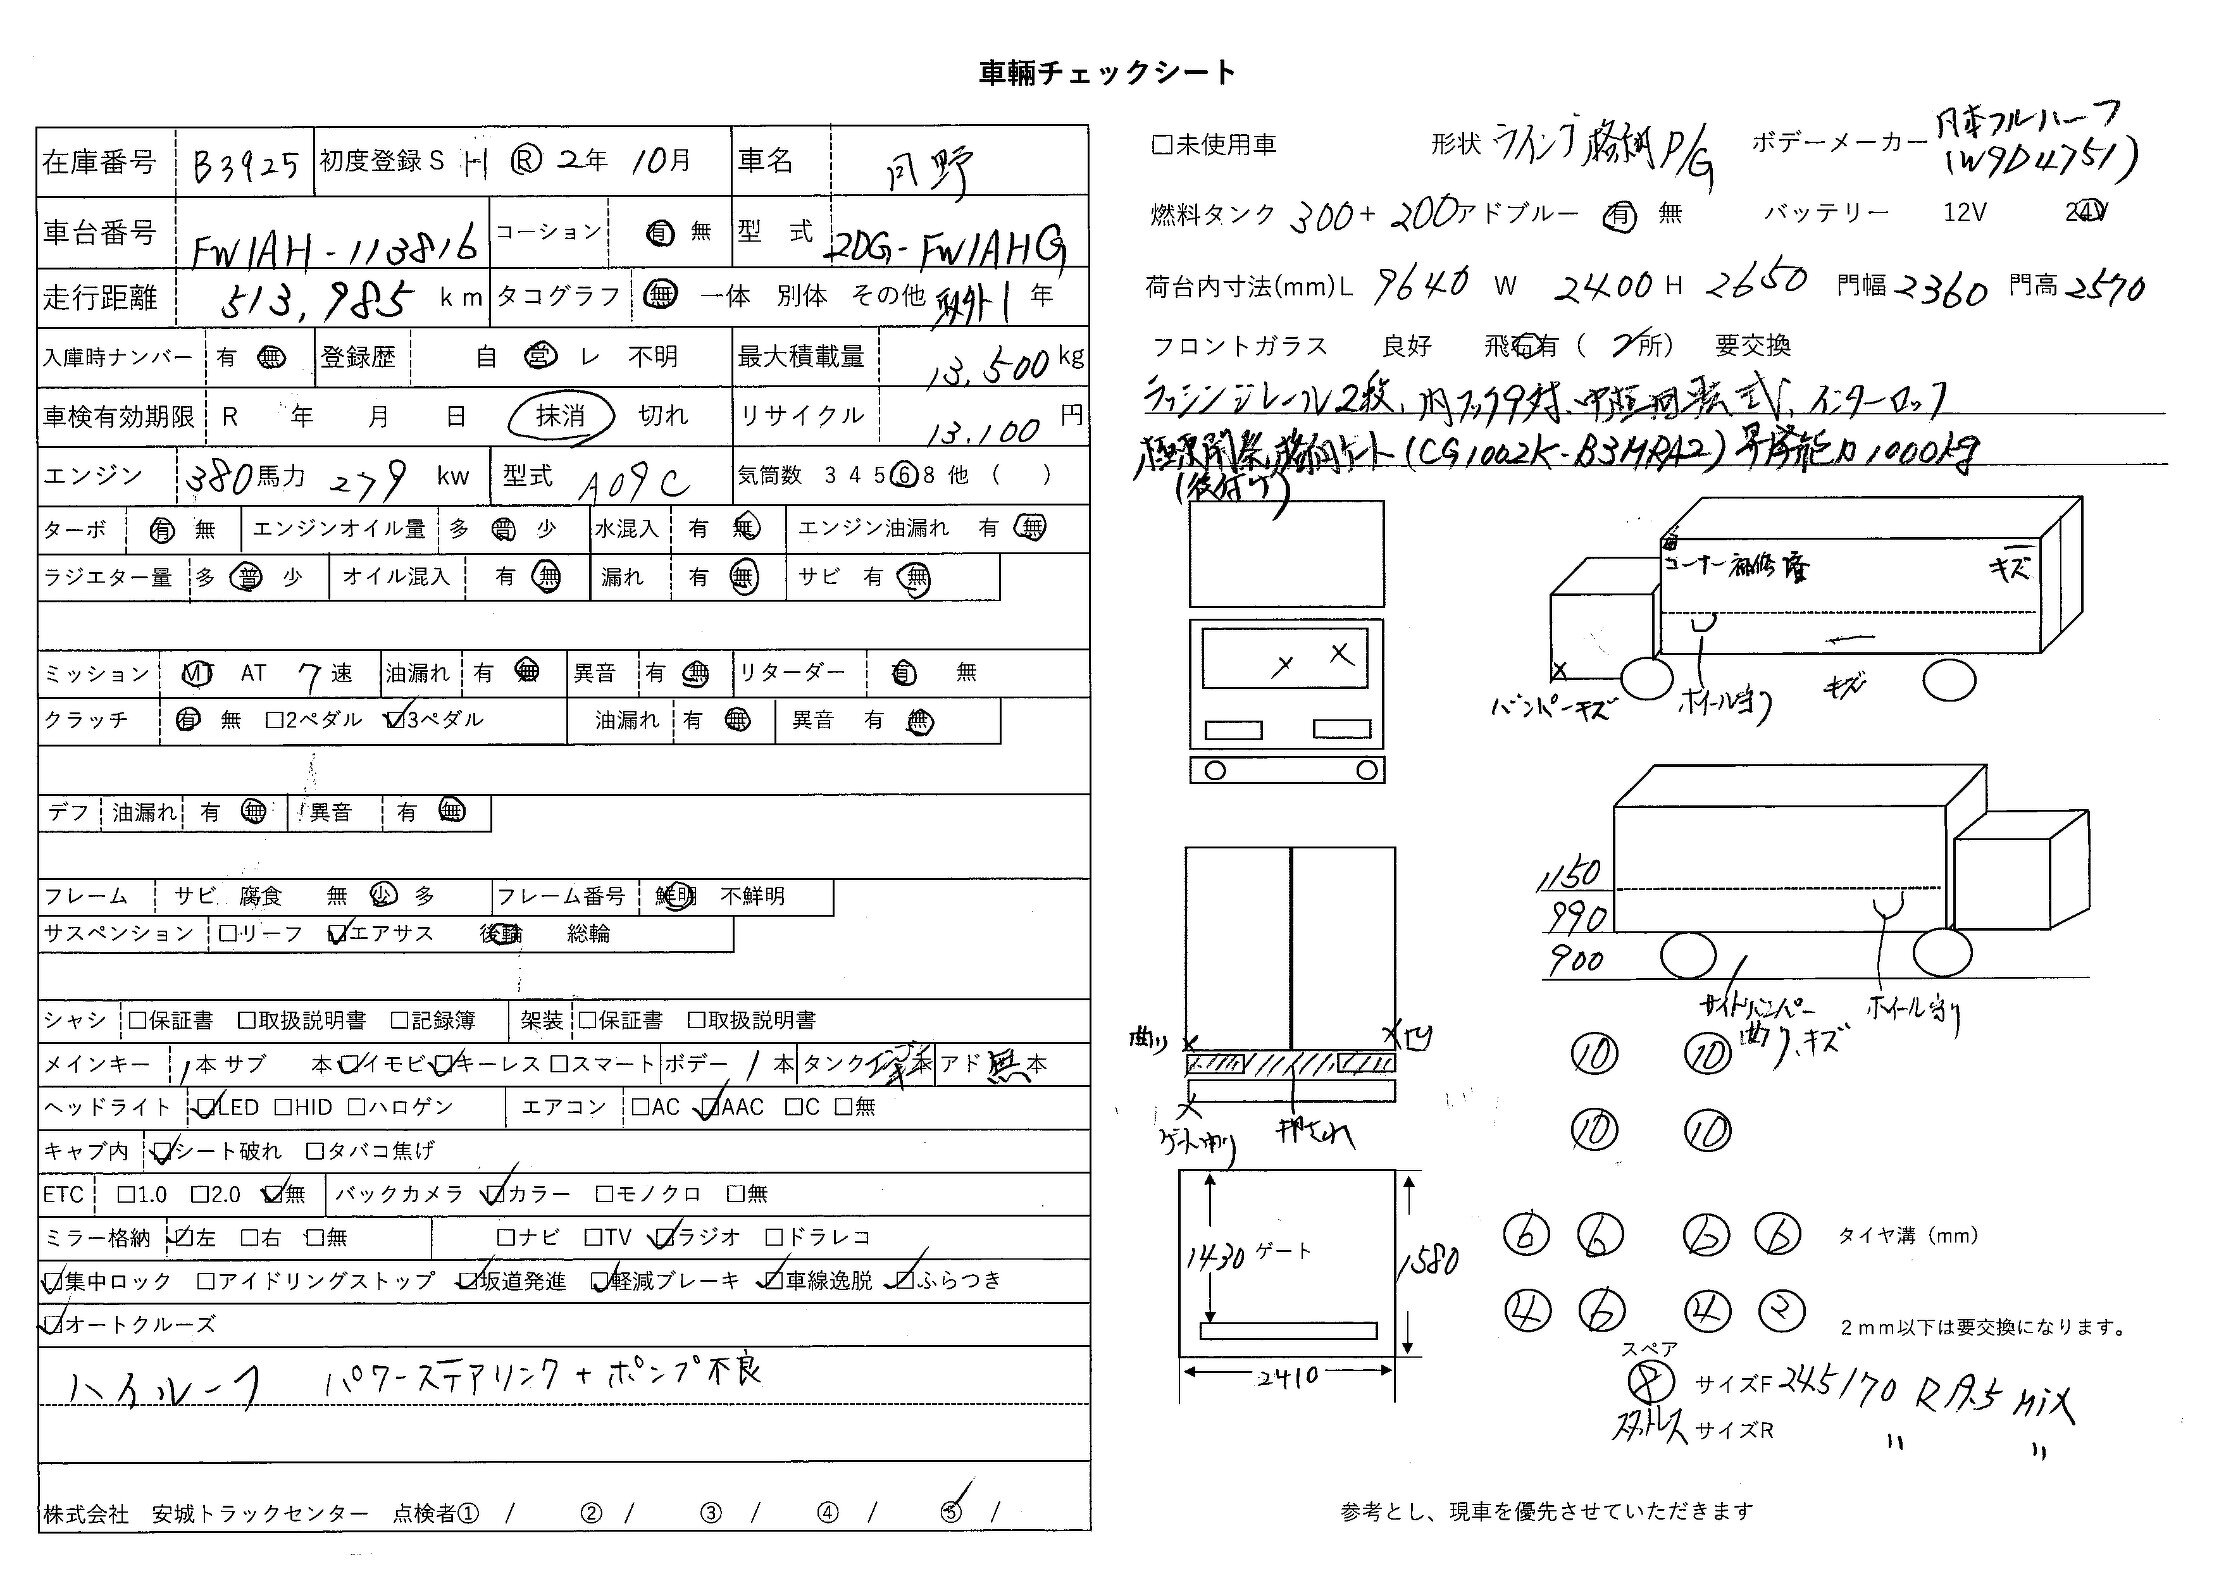 車輌チェックシート
在庫番号 B3925 初度登録 S H R 2年 10月 車名 日野
車台番号 FW1AH-113816 コーション 有 無 型 式 2DG-FW1AHG
走行距離 513,985 km タコグラフ 無 一体 別体 その他 1 年
入庫時ナンバー 有 無 登録歴 自 営 レ 不明 最大積載量 13,500 kg
車検有効期限 R 年 月 日 抹消 切れ リサイクル 13,100 円
エンジン 380 馬力 279 kw 型式 A09C 気筒数 3 4 5 6 8 他 ( )
ターボ 有 無 エンジンオイル量 多 普 少 水混入 有 無 エンジン油漏れ 有 無
ラジエター量 多 普 少 オイル混入 有 無 漏れ 有 無 サビ 有 無
ミッション MT AT 7 速 油漏れ 有 無 異音 有 無 リターダー 有 無
クラッチ 有 無 □2ペダル ☑3ペダル 油漏れ 有 無 異音 有 無
デフ 油漏れ 有 無 異音 有 無
フレーム サビ 腐食 無 少 多 フレーム番号 鮮明 不鮮明
サスペンション □リーフ ☑エアサス 後輪 総輪
シャシ □保証書 □取扱説明書 □記録簿 架装 □保証書 □取扱説明書
メインキー 1本 サブ 本 ☑イモビ ☑キーレス □スマート ボデー 1 本 タンク 本 アド 無 本
ヘッドライト ☑LED □HID □ハロゲン エアコン □AC ☑AAC □C □無
キャブ内 ☑シート破れ □タバコ焦げ
ETC □1.0 □2.0 ☑無 バックカメラ ☑カラー □モノクロ □無
ミラー格納 ☑左 □右 □無 □ナビ □TV ☑ラジオ □ドラレコ
☑集中ロック □アイドリングストップ ☑坂道発進 ☑軽減ブレーキ ☑車線逸脱 ☑ふらつき
☑オートクルーズ
ハイルーフ パワーステアリング+ポンプ不良
株式会社 安城トラックセンター 点検者① / ② / ③ / ④ / ⑤ /
□未使用車 形状 ウイング格納P/G ボデーメーカー 日本フルハーフ
(W9D4751)
燃料タンク 300+200 アドブルー 有 無 バッテリー 12V 24V
荷台内寸法(mm) L 9640 W 2400 H 2650 門幅 2360 門高 2570
フロントガラス 良好 飛石有 ( 2所) 要交換
ラッシングレール2段、内フック9対、中柱回転式、インターロック
格納ゲート(CG1002K-B3MRA2) 昇降能力1000kg
(後付け)
コーナー補修痕 キズ
バンパーキズ ホイール守り キズ
1150
990
900
サイドバンパー ホイール守り
曲り、キズ
曲り 凹
ゲート曲り 押され
⑩ ⑩
⑩ ⑩
1430 ゲート 1580
2410
⑥ ⑥ ⑥ ⑥ タイヤ溝(mm)
④ ⑥ ④ ② 2mm以下は要交換になります。
スペア
⑧ サイズF 245/70 R19.5 MIX
スタットレス サイズR 〃 〃
参考とし、現車を優先させていただきます